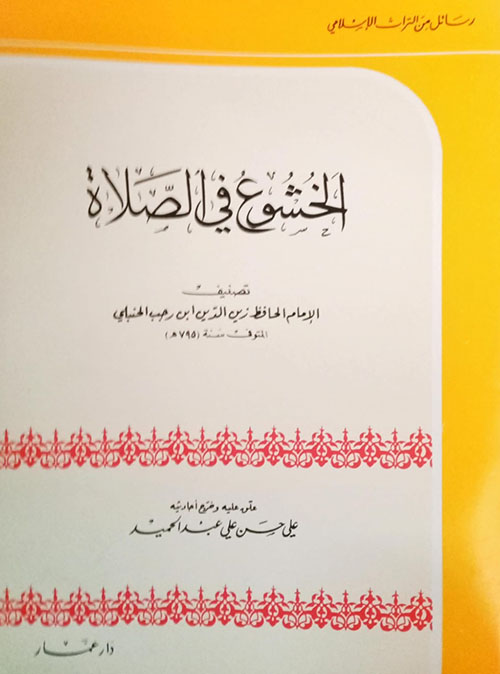 رسائل من التراث الإسلامي
الخشوع في الصلاة
تصنيف
الإمام الحافظ زين الدين ابن رجب الحنبلي
المتوفى سنة (٧٩٥هـ)
علق عليه وخرج أحاديثه
علي حسن علي عبد الحميد
دار عمار